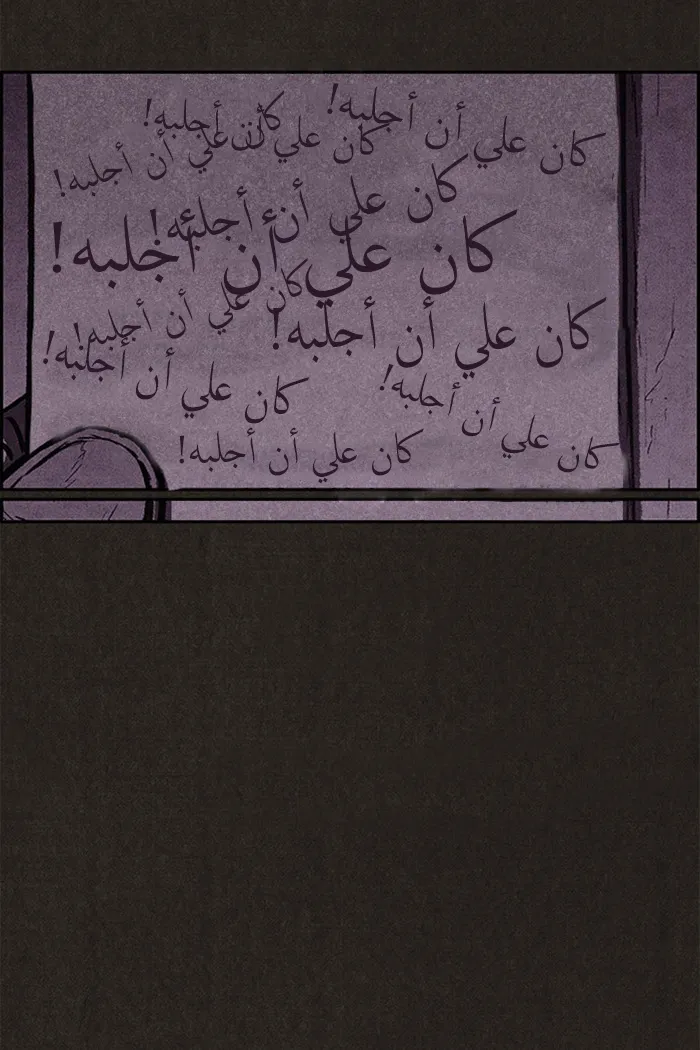 كان علي أن أجلبه!
كان علي أن أجلبه!
كان علي أن أجلبه!
كان علي أن أجلبه!
كان علي أن أجلبه!
كان علي أن أجلبه!
كان علي أن أجلبه!
كان علي أن أجلبه!
كان علي أن أجلبه!
كان علي أن أجلبه!